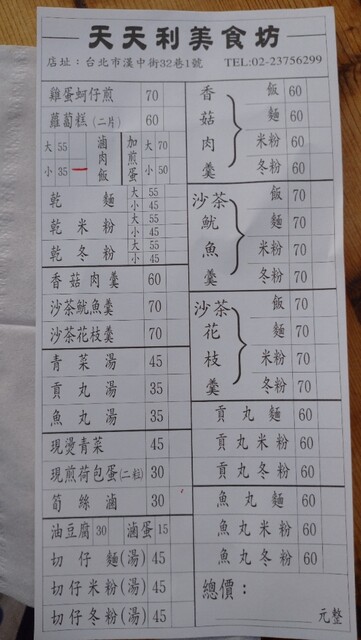 天天利美食坊
店址：台北市漢中街32巷1號 TEL:02-23756299
雞蛋蚵仔煎 70
蘿蔔糕(二片) 60
滷肉飯 大 55 小 35
加煎蛋 大 70 小 50
乾麵 大 55 小 45
乾米粉 大 55 小 45
乾冬粉 大 55 小 45
香菇肉羹 60
沙茶魷魚羹 70
沙茶花枝羹 70
青菜湯 45
貢丸湯 35
魚丸湯 35
現燙青菜 45
現煎荷包蛋(二粒) 30
筍絲滷 30
油豆腐 30 滷蛋 15
切仔麵(湯) 45
切仔米粉(湯) 45
切仔冬粉(湯) 45
香菇肉羹
飯 60
麵 60
米粉 60
冬粉 60
沙茶魷魚羹
飯 70
麵 70
米粉 70
冬粉 70
沙茶花枝羹
飯 70
麵 70
米粉 70
冬粉 70
貢丸麵 60
貢丸米粉 60
貢丸冬粉 60
魚丸麵 60
魚丸米粉 60
魚丸冬粉 60
總價：
元整